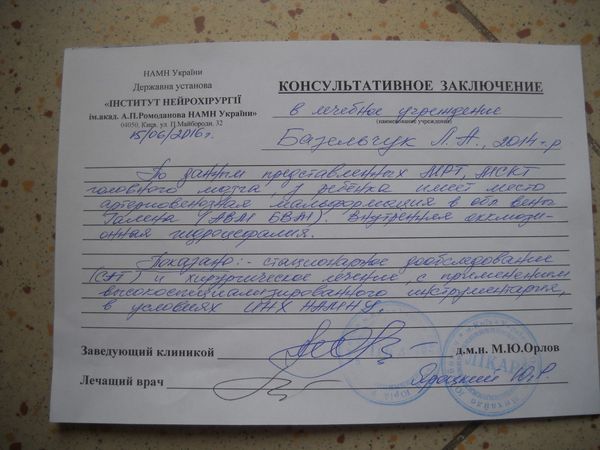 НАМН України
Державна установа
«ІНСТИТУТ НЕЙРОХІРУРГІЇ
ім.акад. А.П.Ромоданова НАМН України»
04050, Київ, ул. П.Майбороди, 32
15/06/2016г.
КОНСУЛЬТАТИВНОЕ ЗАКЛЮЧЕНИЕ
в лечебное учреждение
(наименование учреждения)
Базельчук Л.А., 2014г.р
По данным представленных МРТ, МСКТ
головного мозга, у ребенка имеет место
артериовенозная мальформация в обл вены
Галена (АВМ БВМ). Внутренняя окклюзи-
онная гидроцефалия.
Показано:- стационарное дообследование
(САГ) и хирургическое лечение, с применением
высокоспециализированного инструментария,
в условиях ИНХ НАМНУ.
Заведующий клиникой
д.м.н. М.Ю.Орлов
Лечащий врач
Яроцкий Ю.Р.
ЛІКАР